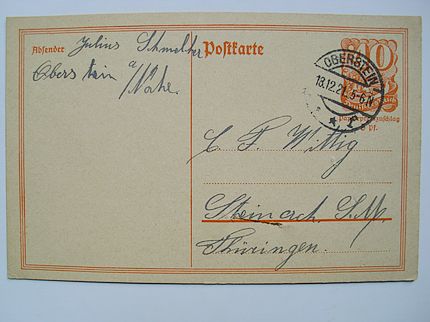 Absender Julius Schmelzer
Oberstein a/Nahe.
Postkarte
10
OBERSTEIN
13.12.21. 5-6 N
* f
Papierpreiszuschlag
5 Pf.
C. F. Wittig
Steinach. S.M.
Thüringen.